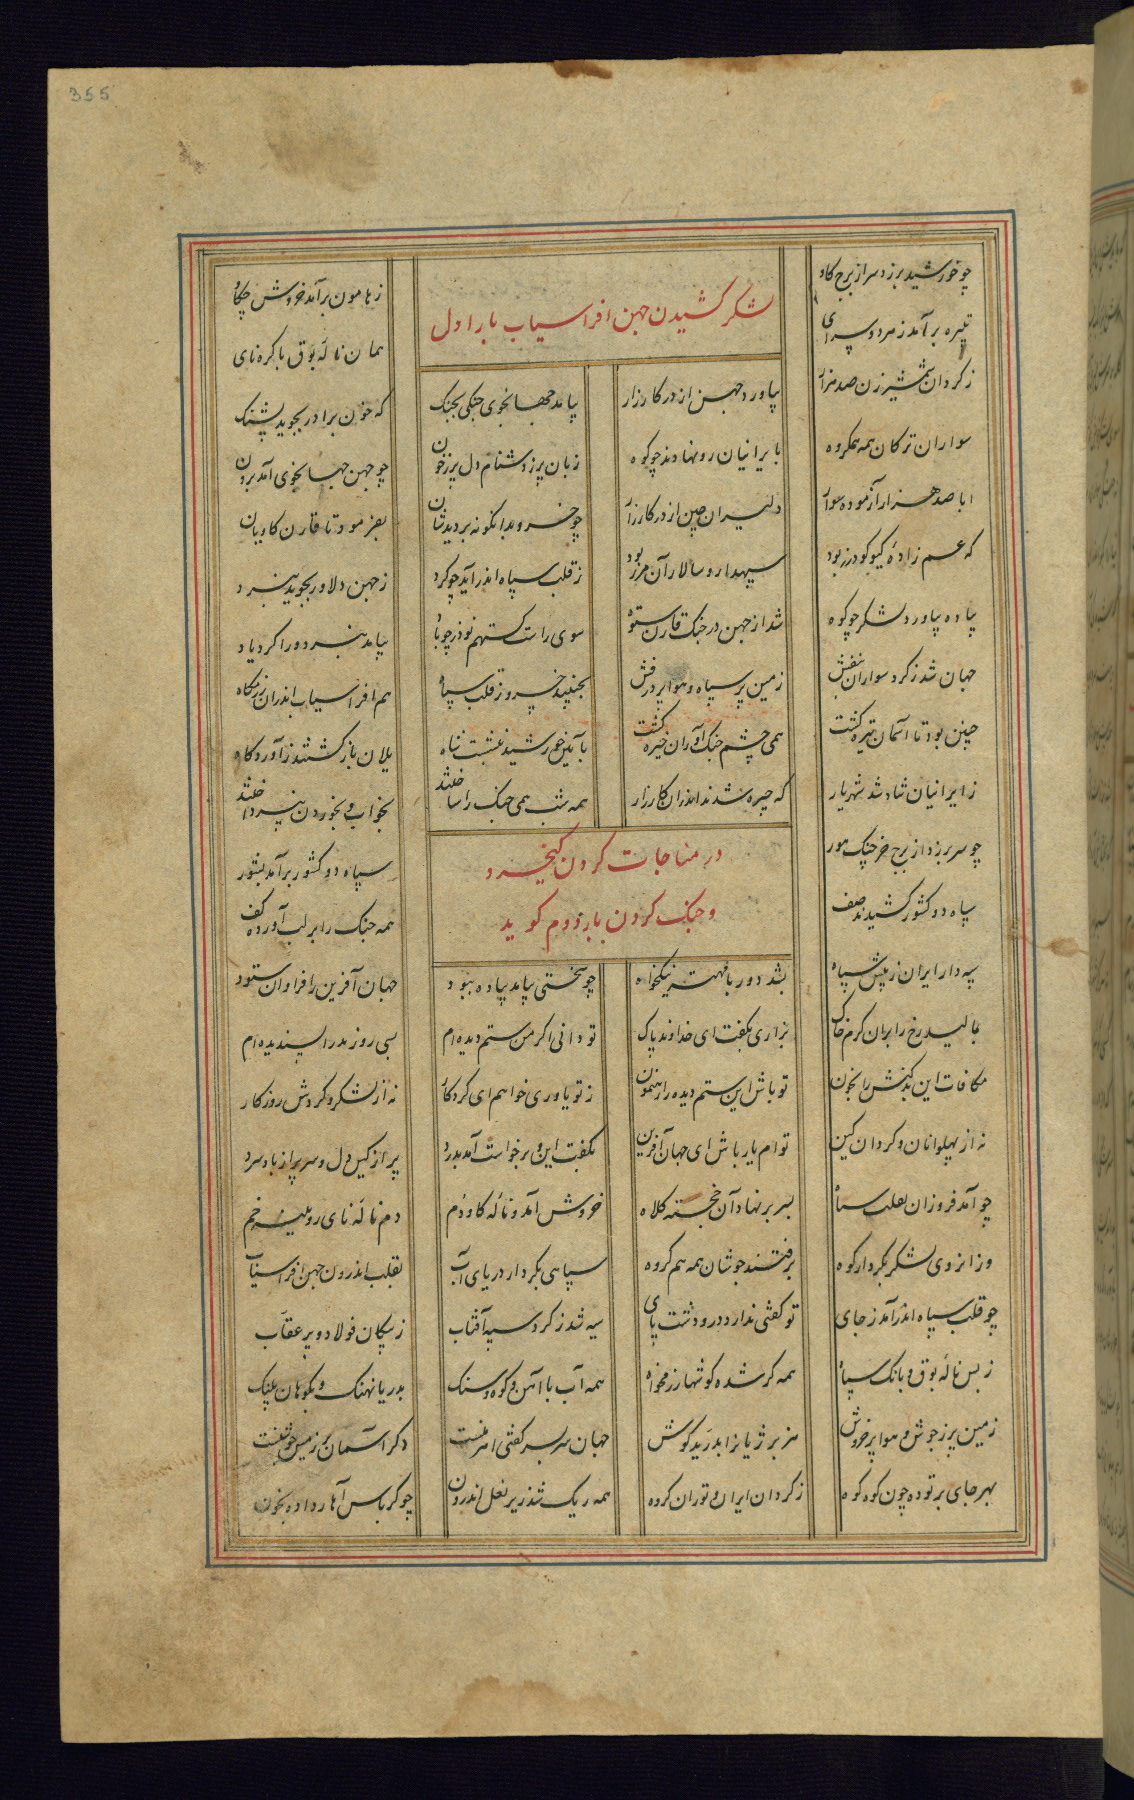 355
چو خورشید برزد سر از برج گاو
لشکر کشیدن جهن افراسیاب بار اول
ز هامون برآمد خروش چکاو
تبیره برآمد ز هر دو سرای
همان نالهٔ بوق با کره نای
ز گردان شمشیر زن صد هزار
بیاورد جهن از در کارزار
بیامد جهانجوی جنگی بجنگ
که خون برادر بجوید پشنگ
سواران ترکان همه همگروه
بایرانیان رو نهادند چو کوه
زبان پر ز دشنام دل پر ز خون
چو جهن جهانجوی آمد برون
ابا صد هزار آزموده سوار
دلیران چین از در کارزار
چو خسرو بدانگونه بر دیدشان
بفرمود تا قارن کاویان
که عم زادهٔ گیو گودرز بود
سپهدار و سالار آن مرز بود
ز قلب سپاه اندر آید چو گرد
ز جهن دلاور بجوید نبرد
پیاده بیاورد لشکر چو کوه
شد از جهن در جنگ قارن ستوه
سوی راست گستهم نوذر چو باد
بیامد نبرده ورا کرد یاد
جهان شد ز گرد سواران بنفش
زمین پر سپاه و هوا پر درفش
بجنبید خسرو ز قلب سپاه
هم افراسیاب اندران رزمگاه
چنین بود تا آسمان تیره گشت
همی چشم جنگ آوران خیره گشت
بآیین خورشید بنشست تباه
یلان بازگشتند ز آوردگاه
ز ایرانیان شاد شد شهریار
که چیره شدند اندران کارزار
همه شب همی جنگ را ساختند
بخواب و بخوردن نپرداختند
در مناجات کردن کیخسرو
و جنگ کردن بار دوم گوید
چو سر برزد از برج خرچنگ هور
سپاه دو کشور برآمد بشور
سپاه دو کشور کشیدند صف
همه جنگ را بر لب آورده کف
سپه دار ایران ز پیش سپاه
بشد دور با مهتر نیکخواه
چو لختی بیامد پیاده ببود
جهان آفرین را فراوان ستود
بمالید رخ را بران گرم خاک
بزاری بگفت ای خداوند پاک
تو دانی اگر من ستم دیده ام
بسی روز بد را پسندیده ام
مکافات این بدکنش را بخون
تو باش این ستم دیده را رهنمون
ز تو یاوری خواهم ای کردگار
نه از لشکر و گردش روزگار
نه از پهلوانان و گردان کین
توام یار باش ای جهان آفرین
بگفت این و برخواست آمد بدرد
پر از کین دل و سر پر از باد سرد
چو آمد فروزان بقلب سپاه
بسر بر نهاد آن خجسته کلاه
خروش آمد و نالهٔ گاودم
دم نالهٔ نای رویینه خم
وزانروی لشکر بکردار کوه
برفتند جوشان همه هم گروه
سپاهی بکردار دریای آب
بقلب اندرون جهن افراسیاب
چو قلب سپاه اندر آمد ز جای
تو گفتی ندارد در و دشت پای
سیه شد ز گرد سپه آفتاب
ز پیکان فولاد و پر عقاب
ز بس نالهٔ بوق و بانگ سپاه
همه کر شده گوشها رزمخواه
همه آب با آهن و کوه و سنگ
بدریا نهنگ و بکوهان پلنگ
زمین پر ز جوش و هوا پر خروش
هزبر ژیانرا بدرید گوش
جهان سربسر گفتی آهرمنست
دگر آسمان بر زمین جوشنست
بهر جای بر توده چون کوه کوه
ز گردان ایران و توران گروه
همه ریگ شد زیر نعل اندرون
چو کرباس آهار داده بخون